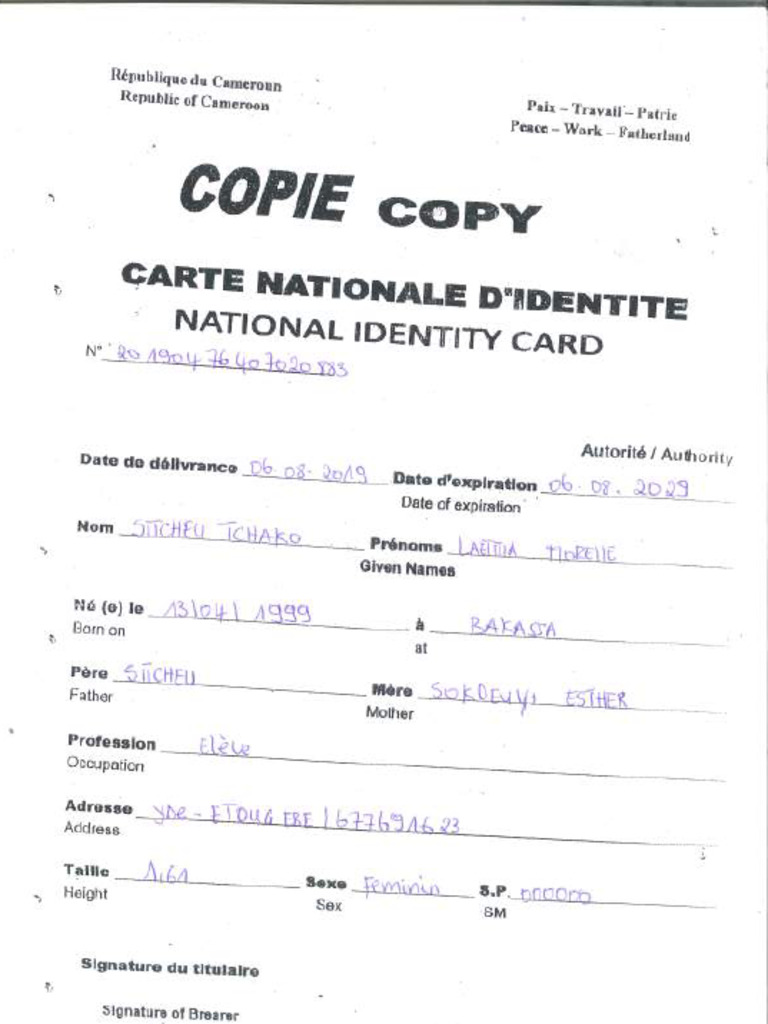 République du Cameroun
Republic of Cameroon
Paix – Travail – Patrie
Peace – Work – Fatherland
COPIE COPY
CARTE NATIONALE D'IDENTITE
NATIONAL IDENTITY CARD
N° 20190476407020883
Autorité / Authority
Date de délivrance 06.08.2019 Date d'expiration 06.08.2029
Date of expiration
Nom SITCHEU TCHAKO Prénoms LAETITIA MORELLE
Given Names
Né (e) le 13/04/1999 à BAKASSA
Born on at
Père SITCHEU Mère ESTHER
Father Mother
Profession Elève
Occupation
Adresse YDE - ETOUG EBE / 677691623
Address
Taille 1,61 Sexe Feminin S.P. 000000
Height Sex SM
Signature du titulaire
Signature of Brearer